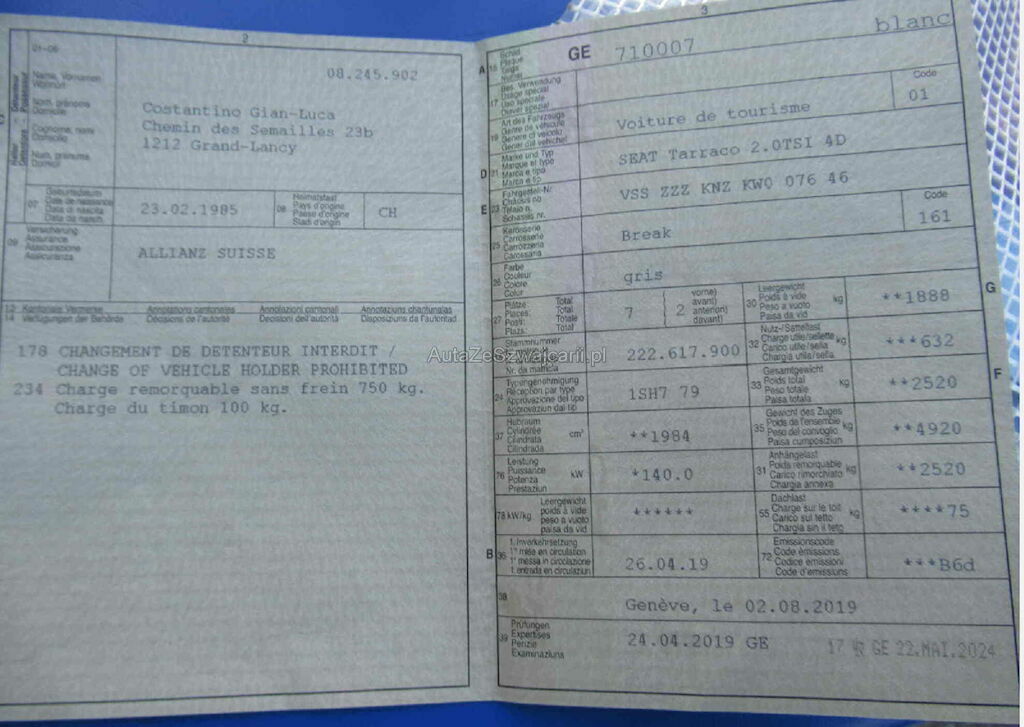 2
01-06
08.245.902
Name, Vornamen
Wohnort
Nom, prénoms
Domicile
Cognome, nomi
Domicilio
Num, prenums
Domicil
Costantino Gian-Luca
Chemin des Semailles 23b
1212 Grand-Lancy
07
Geburtsdatum
Date de naissance
Data di nascita
Data da nasch.
23.02.1985
08
Heimatstaat
Pays d'origine
Paese d'origine
Stadi d'origin
CH
09
Versicherung
Assurance
Assicurazione
Assicuranza
ALLIANZ SUISSE
13 Kantonale Vermerke Annotations cantonales Annotazioni cantonali Annotaziuns chantunalas
14 Verfügungen der Behörde Décisions de l'autorité Decisioni dell'autorità Disposiziuns da l'autoritad
178 CHANGEMENT DE DETENTEUR INTERDIT /
CHANGE OF VEHICLE HOLDER PROHIBITED
234 Charge remorquable sans frein 750 kg.
Charge du timon 100 kg.
AutaZeSzwajcarii.pl
3
A
Schild
Plaque
Targa
Numer
GE 710007 blanc
17
Bes. Verwendung
Usage spécial
Uso speciale
Diever spezial
19
Art des Fahrzeugs
Genre de véhicule
Genere di veicolo
Gener dal vehichel
Voiture de tourisme
Code
01
D 21
Marke und Typ
Marque et type
Marca e tipo
Marca e tip
SEAT Tarraco 2.0TSI 4D
E 23
Fahrgestell-Nr.
Châssis no
Telaio n.
Schassis nr.
VSS ZZZ KNZ KW0 076 46
25
Karosserie
Carrosserie
Carrozzeria
Carossaria
Break
Code
161
26
Farbe
Couleur
Colore
Colur
gris
27
Plätze: Total
Places: Total
Posti: Totale
Plazs: Total
7
2
vorne)
avant)
anteriori)
davant)
G
30
Leergewicht
Poids à vide
Peso a vuoto
Paisa da vid
kg
**1888
Stammnummer
Nr. da matricla
222.617.900
32
Nutz-/Sattellast
Charge utile/sellette
Carico utile/sella
Chargia utila/sella
kg
***632
24
Typengenehmigung
Réception par type
Approvazione del tipo
Approvaziun dal tip
1SH7 79
F
33
Gesamtgewicht
Poids total
Peso totale
Paisa totala
kg
**2520
37
Hubraum
Cylindrée
Cilindrata
Cilindrada
cm³
**1984
35
Gewicht des Zuges
Poids de l'ensemble
Peso del convoglio
Paisa cumposiziun
kg
**4920
76
Leistung
Puissance
Potenza
Prestaziun
kW
*140.0
31
Anhängelast
Poids remorquable
Carico rimorchiato
Chargia annexa
kg
**2520
78 kW/kg
Leergewicht
poids à vide
peso a vuoto
paisa da vid
******
55
Dachlast
Charge sur le toit
Carico sul tetto
Chargia sin il tetg
kg
****75
B 36
1. Inverkehrsetzung
1re mise en circulation
1a messa in circolazione
1. entrada en circulaziun
26.04.19
72
Emissionscode
Code émissions
Codice emissioni
Code d'emissiuns
***B6d
38
Genève, le 02.08.2019
39
Prüfungen
Expertises
Perizie
Examinaziuns
24.04.2019 GE
GE 22.MAI.2024